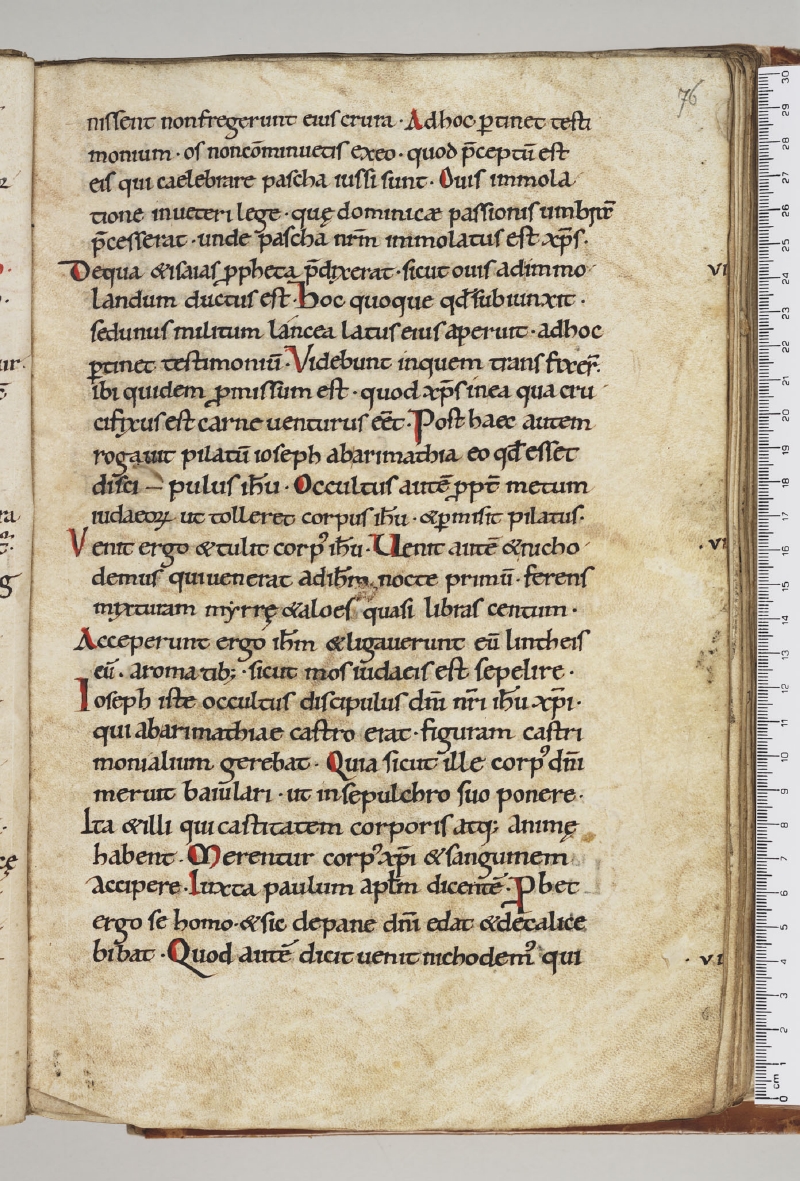 76
nissent non fregerunt eius crura · Ad hoc ꝑtinet testi
monium · os non cōminuetis ex eo · quod p̄ceptū est
eis qui caelebrare pascha iussi sunt · Ouis immola
tione in ueteri lege · quę dominicæ passionis umbra
p̄cesserat · unde pascha nr̄m immolatus est xp̄s ·
De qua & isaias ꝓpheta p̄dixerat · sicut ouis ad immo
landum ductus est · Hoc quoque qđ subiunxit ·
sed unus militum lancea latus eius aperuit · ad hoc
ꝑtinet testimoniū · Videbunt inquem transfixer̄ ·
ibi quidem ꝓmissum est · quod xp̄s in ea qua cru
cifixus est carne uenturus eēt · Post haec autem
rogauit pilatū ioseph ab arimathia eo qđ esset
disci – pulus ih̄u · Occultus autē ꝓpt̄ metum
iudaeoꝝ ut tolleret corpus ih̄u · & ꝑmisit pilatus ·
Venit ergo & tulit corp᾿ ih̄u · Uenit autē & nicho
demus qui uenerat ad ih̄m nocte primū · ferens
mixturam myrrę & aloes quasi libras centum ·
Acceperunt ergo ih̄m & ligauerunt eū lintheis
eū · aromatib; · sicut mos iudaeis est sepelire ·
Ioseph iste occultus discipulus dn̄i nr̄i ih̄u xp̄i ·
qui ab arimathiae castro erat · figuram castri
monialium gerebat · Quia sicut ille corp᾿ dn̄i
meruit baiulari · ut in sepulchro suo ponere ·
Ita & illi qui castitatem corporis atq; animę
habent · Merentur corp᾿ xp̄i & sanguinem
accipere · Iuxta paulum aplm̄ dicentē · Pbet
ergo se homo · & sic de pane dn̄i edat & de calice
bibat · Quod autē dicit uenit nichodem᾿ qui